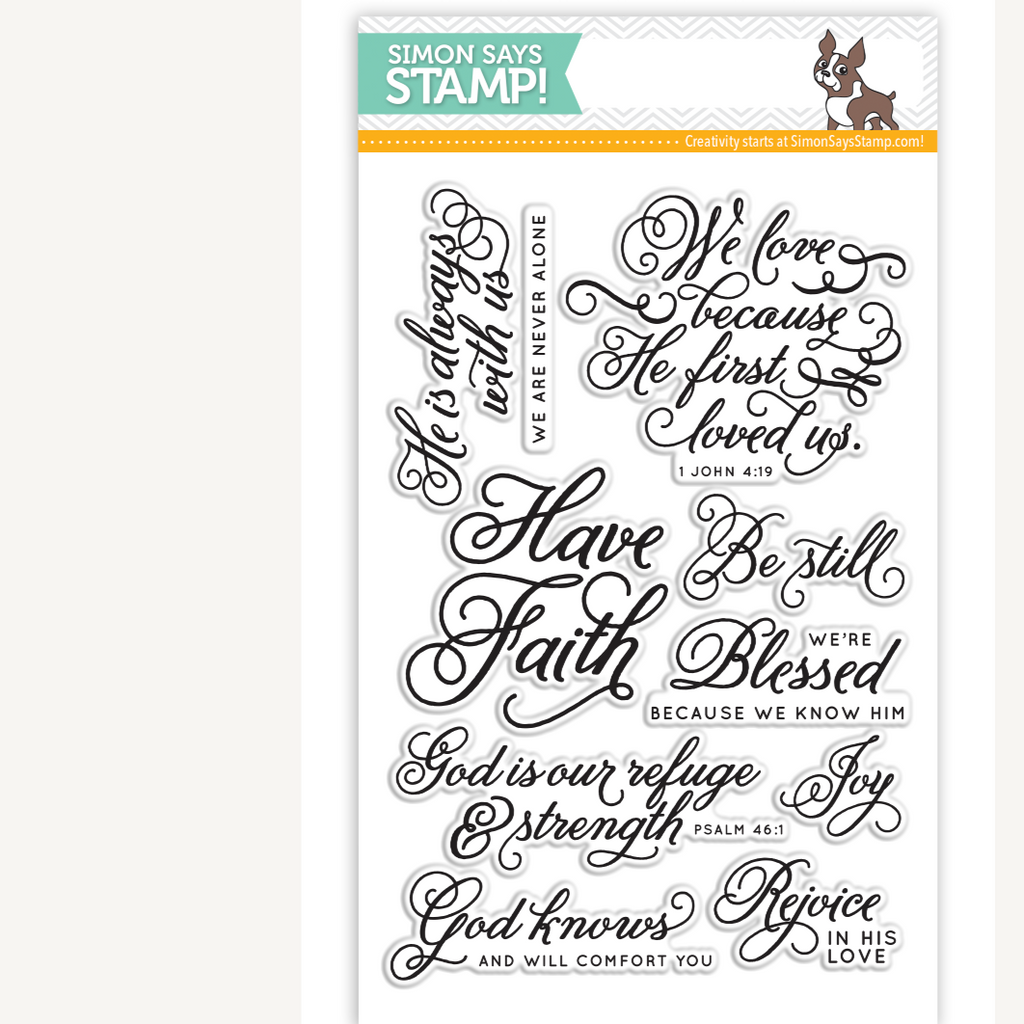 SIMON SAYS
STAMP!
Creativity starts at SimonSaysStamp.com!
He is always
with us
WE ARE NEVER ALONE
We love
because
He first
loved us.
1 JOHN 4:19
Have
Faith
Be still
WE'RE
Blessed
BECAUSE WE KNOW HIM
God is our refuge
& strength
PSALM 46:1
Joy
God knows
AND WILL COMFORT YOU
Rejoice
IN HIS
LOVE